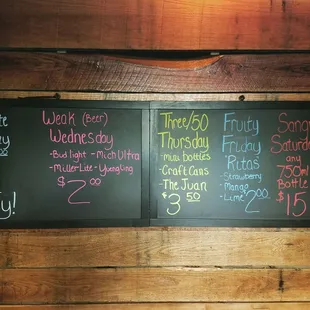 Weak (Beer)
Wednesday
- Bud light - Mich Ultra
- Miller-Lite - Yuengling
$2.00
Three/50
Thursday
mini bottles
- Craft Cans
- The Juan
$3.50
Fruity
Friday
"Ritas"
- Strawberry
- Mango
- Lime 2.00
Saturda
any
750ml
Bottle
$15